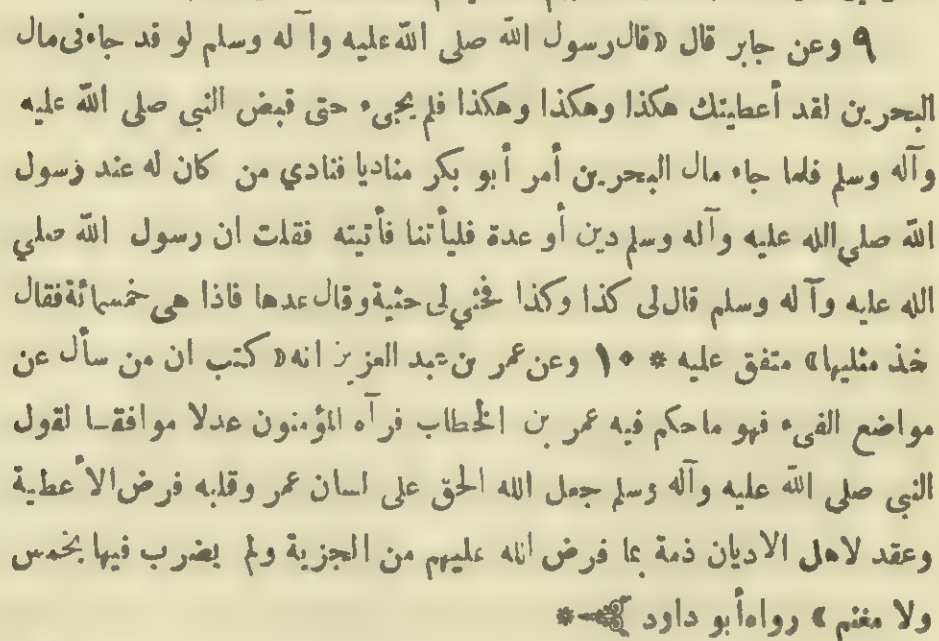 ٩ وعن جابر قال «قال رسول الله صلى الله عليه وآله وسلم لو قد جاءنى مال
البحرين لقد أعطيتك هكذا وهكذا وهكذا فلم يجىء حتى قبض النبي صلى الله عليه
وآله وسلم فلما جاء مال البحرين أمر أبو بكر مناديا فنادي من كان له عند رسول
الله صلى الله عليه وآله وسلم دين أو عدة فليأتنا فأتيته فقلت ان رسول الله صلي
الله عليه وآله وسلم قال لى كذا وكذا فحثي لى حثية وقال عدها فاذا هى خمسمائة فقال
خذ مثليها» متفق عليه * ١٠ وعن عمر بن عبد العزيز انه «كتب ان من سأل عن
مواضع الفىء فهو ماحكم فيه عمر بن الخطاب فرآه المؤمنون عدلا موافقا لقول
النبي صلى الله عليه وآله وسلم جعل الله الحق على لسان عمر وقلبه فرض الأعطية
وعقد لاهل الاديان ذمة بما فرض الله عليهم من الجزية ولم يضرب فيها بخمس
ولا مغنم» رواه أبو داود *